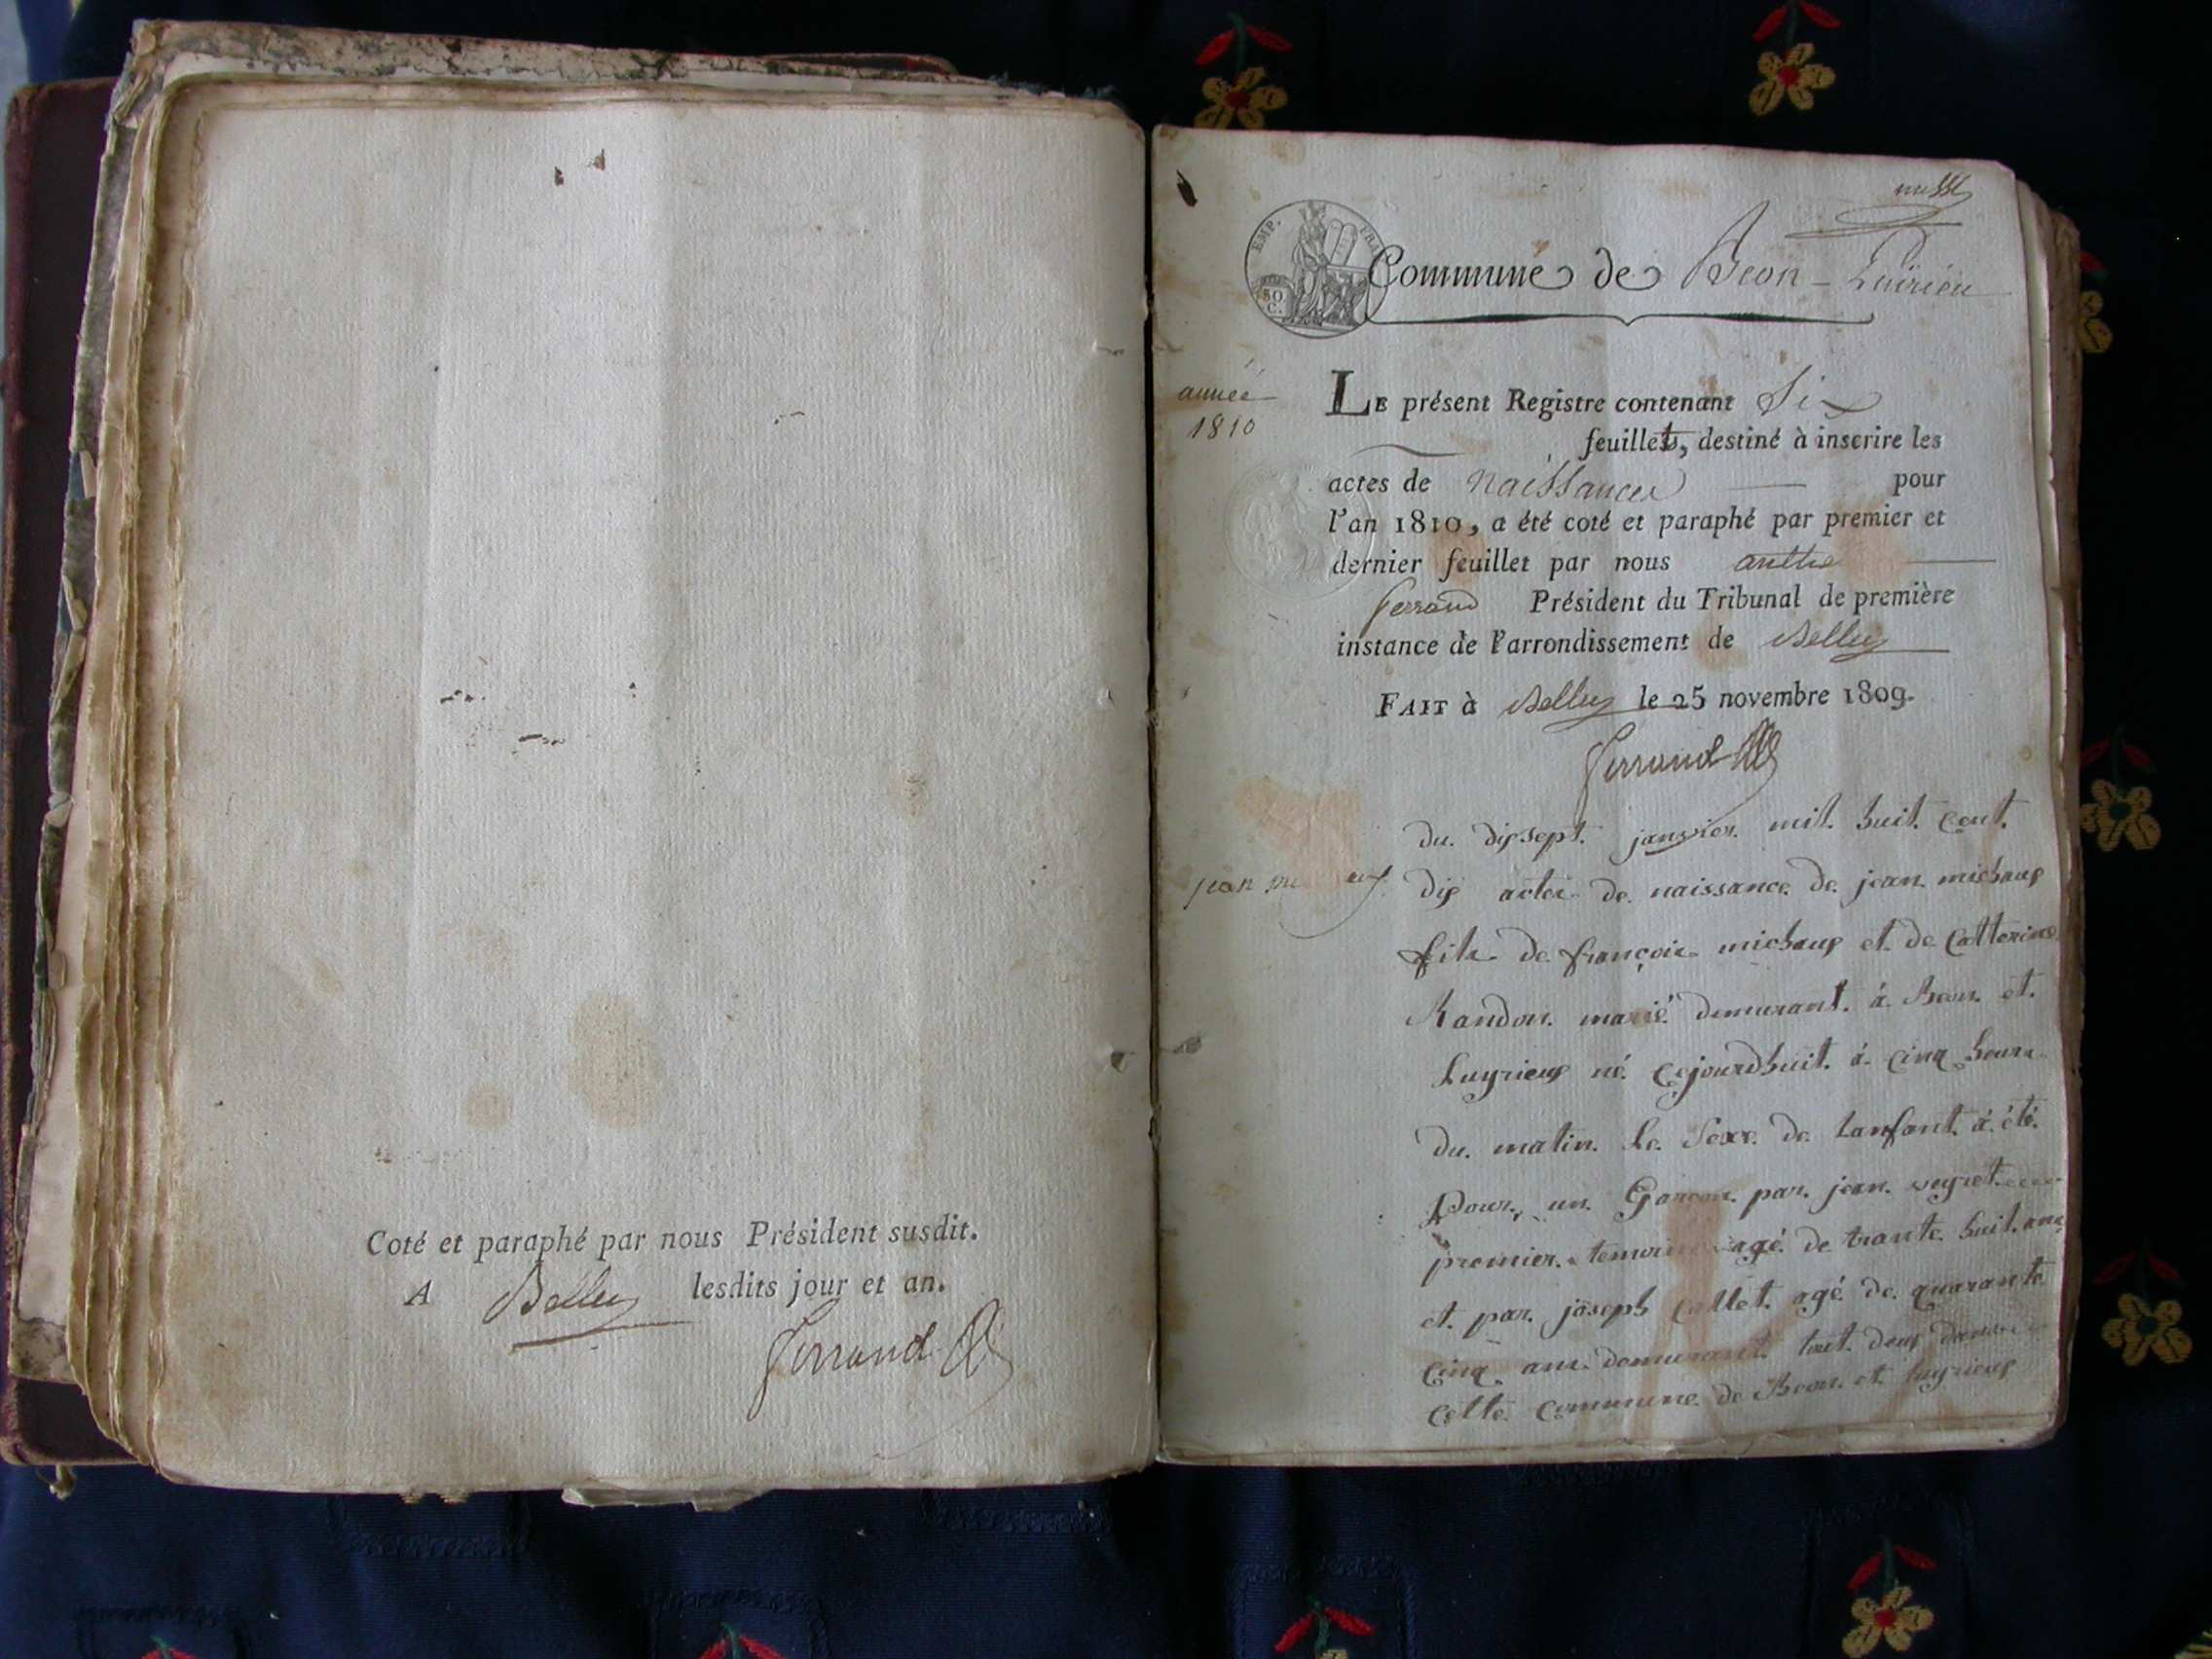 Coté et paraphé par nous Président susdit.
A Belley lesdits jour et an.
Ferrand
EMP. FRA
50
C.
Commune de Beon - Luirieu
année
1810
LE présent Registre contenant Six
feuillets, destiné à inscrire les
actes de naissances pour
l'an 1810, a été coté et paraphé par premier et
dernier feuillet par nous anthe
ferrand Président du Tribunal de première
instance de l'arrondissement de Belley
FAIT à Belley le 25 novembre 1809.
Ferrand
du. dixsept. janvier. mil. huit. Cent.
dix actes de. naissance. de. jean. michaux
jean
fils. de. françois. michaux et. de. Catterine.
Randon. marié. demurant. à. Beon. et.
Luyrieux né. Cejourdhuit. à. Cinq heures
du. matin. Le. Sexe. de. Lanfant. à. été.
Pour. un. Garcon. par. jean. veyret.
premier. temoins agé. de. trante. huit. ans
et. par. joseph Collet. agé. de. quarante
Cinq. ans. demurant. tout. deux dans
Cette. Commune. de Beon. et. luyrieux